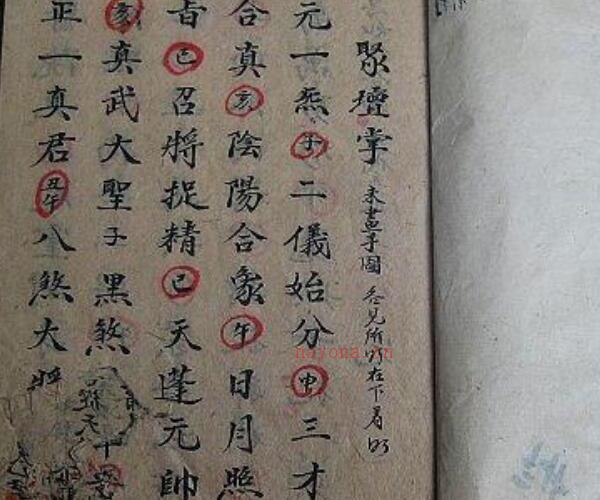 聚壇掌 未畫手圖
元一炁子二儀始分申三才
合真亥陰陽合象午日月照
召將捉精巳天蓬元帥
亥真武大聖子黑煞
正一真君丑午八煞大將
nayona.cn